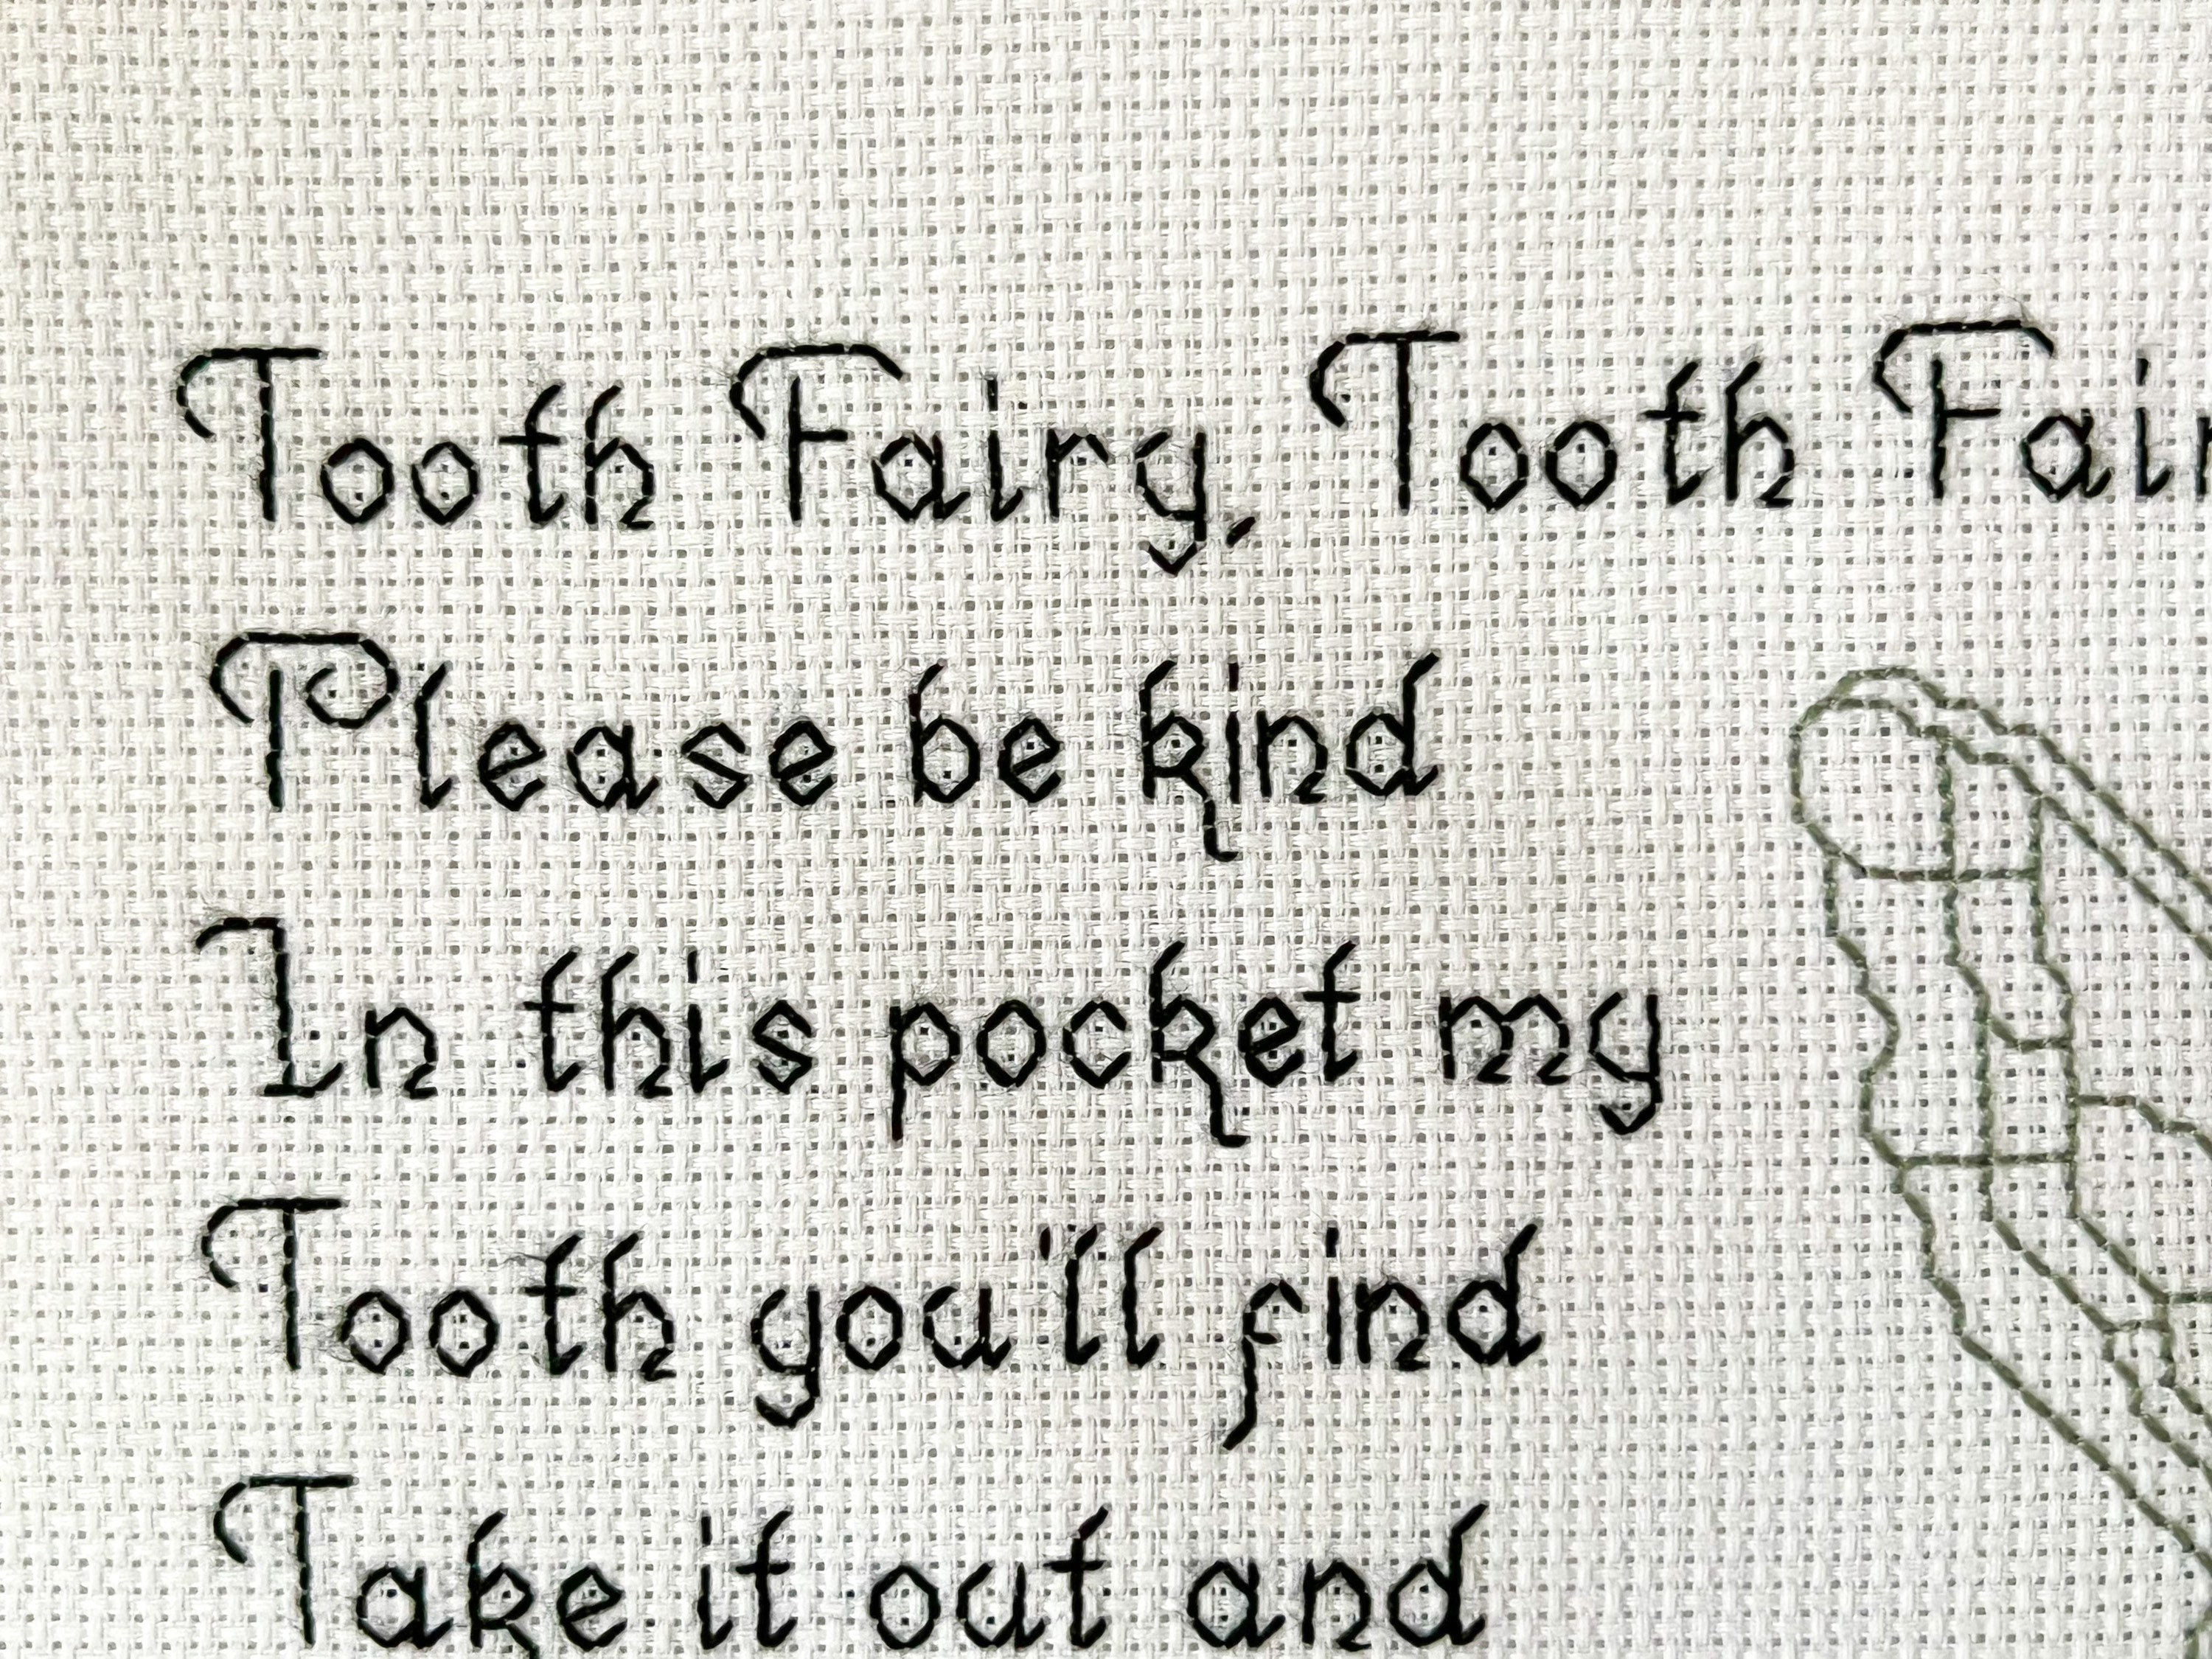 Tooth Fairy, Tooth Fair
Please be kind
In this pocket my
Tooth you'll find
Take it out and